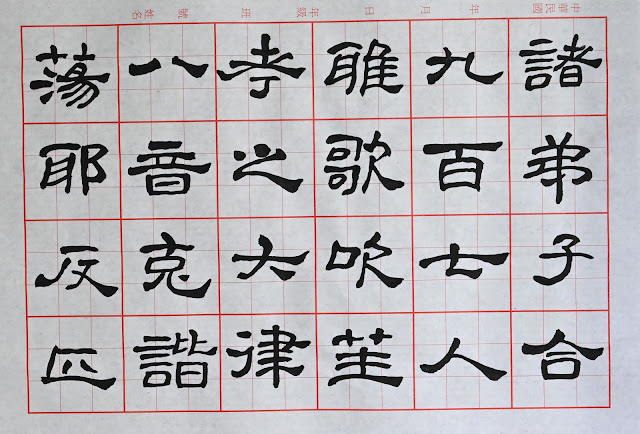 中華民國 年 月 日 年級 班 號 姓名
諸弟子合
九百七人
雅歌吹笙
考之六律
八音克諧
蕩耶反正